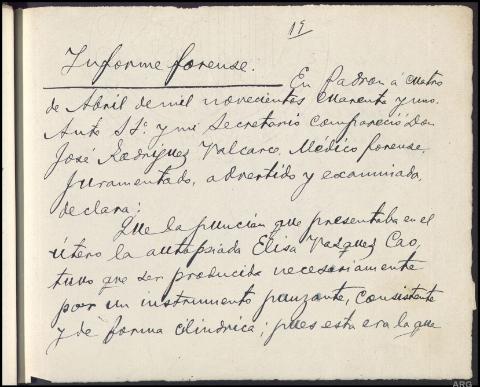 19
Informe forense.
En Padron á cuatro
de Abril de mil novecientos cuarenta y uno.
Ante SSª. y mi Secretario compareció Don
José Rodriguez Valcarce, Médico forense.
Juramentado, advertido y examinado,
declara:
Que la punción que presentaba en el
útero la autopsiada Elisa Vazquez Cao,
tuvo que ser producida necesariamente
por un instrumento punzante, consistente
y de forma cilindrica; pues esta era la que
ARG